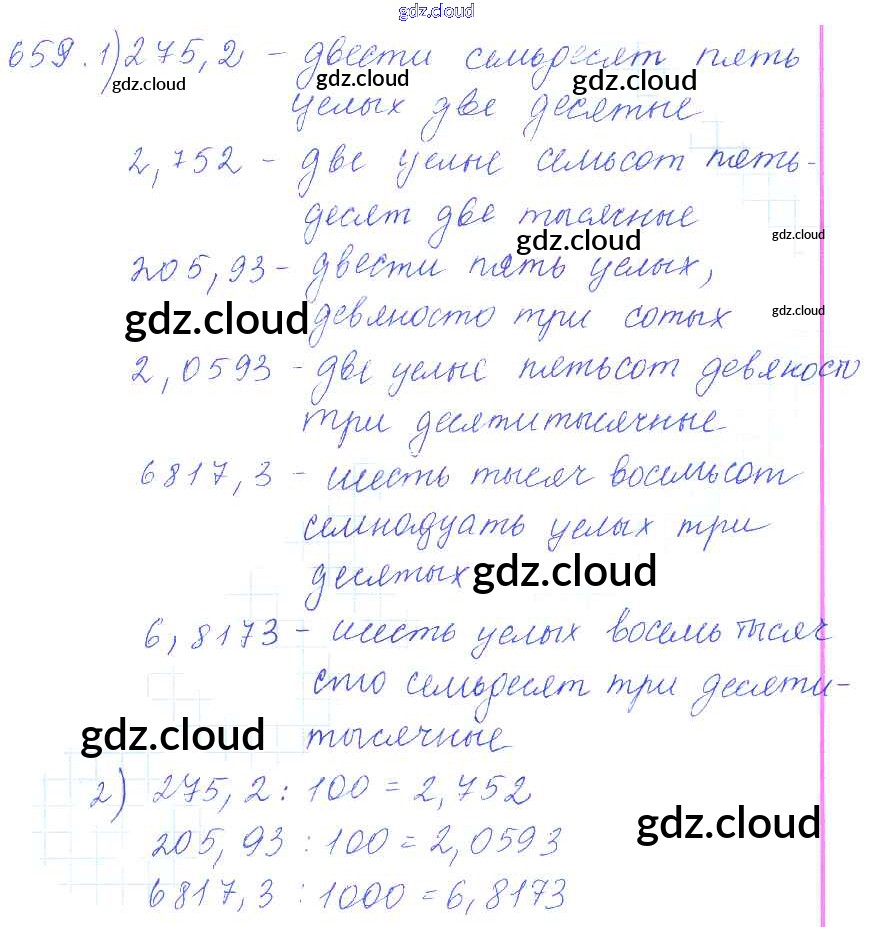 gdz.cloud
659. 1) 275,2 - двести семьдесят пять
gdz.cloud gdz.cloud gdz.cloud
целых две десятые
2,752 - две целые семьсот пять-
десят две тысячные
gdz.cloud gdz.cloud
205,93 - двести пять целых,
gdz.cloud девяносто три сотых gdz.cloud
2,0593 - две целые пятьсот девяносто
три десятитысячные
6817,3 - шесть тысяч восемьсот
семнадцать целых три
десятых gdz.cloud
6,8173 - шесть целых восемь тысяч
сто семьдесят три десяти-
gdz.cloud тысячные
2) 275,2 : 100 = 2,752
gdz.cloud
205,93 : 100 = 2,0593
6817,3 : 1000 = 6,8173